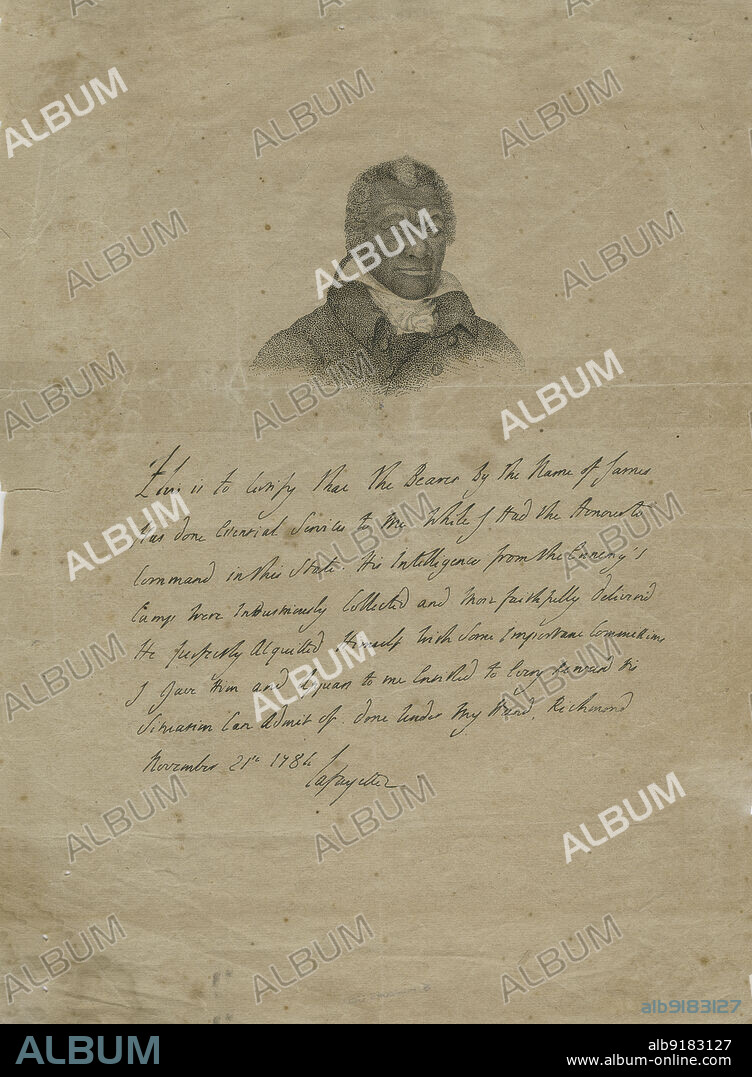 This is to Certify that the Bearer By the Name of James
Has done Essential Services to Me While I Had the Honour to
Command in this State. His Intelligence from the Ennemy's
Camp Were Industriously Collected and More faithfully deliverd
He perfectly Acquitted Himself With Some Important Commissions
I Gave Him and Appears to me Entitled to Every Reward his
Situation Can Admit of. Done Under My Hand, Richmond
November 21st 1784
Lafayette
ALBUM
alb9183127
ALBUM
alb9183127
www.album-online.com